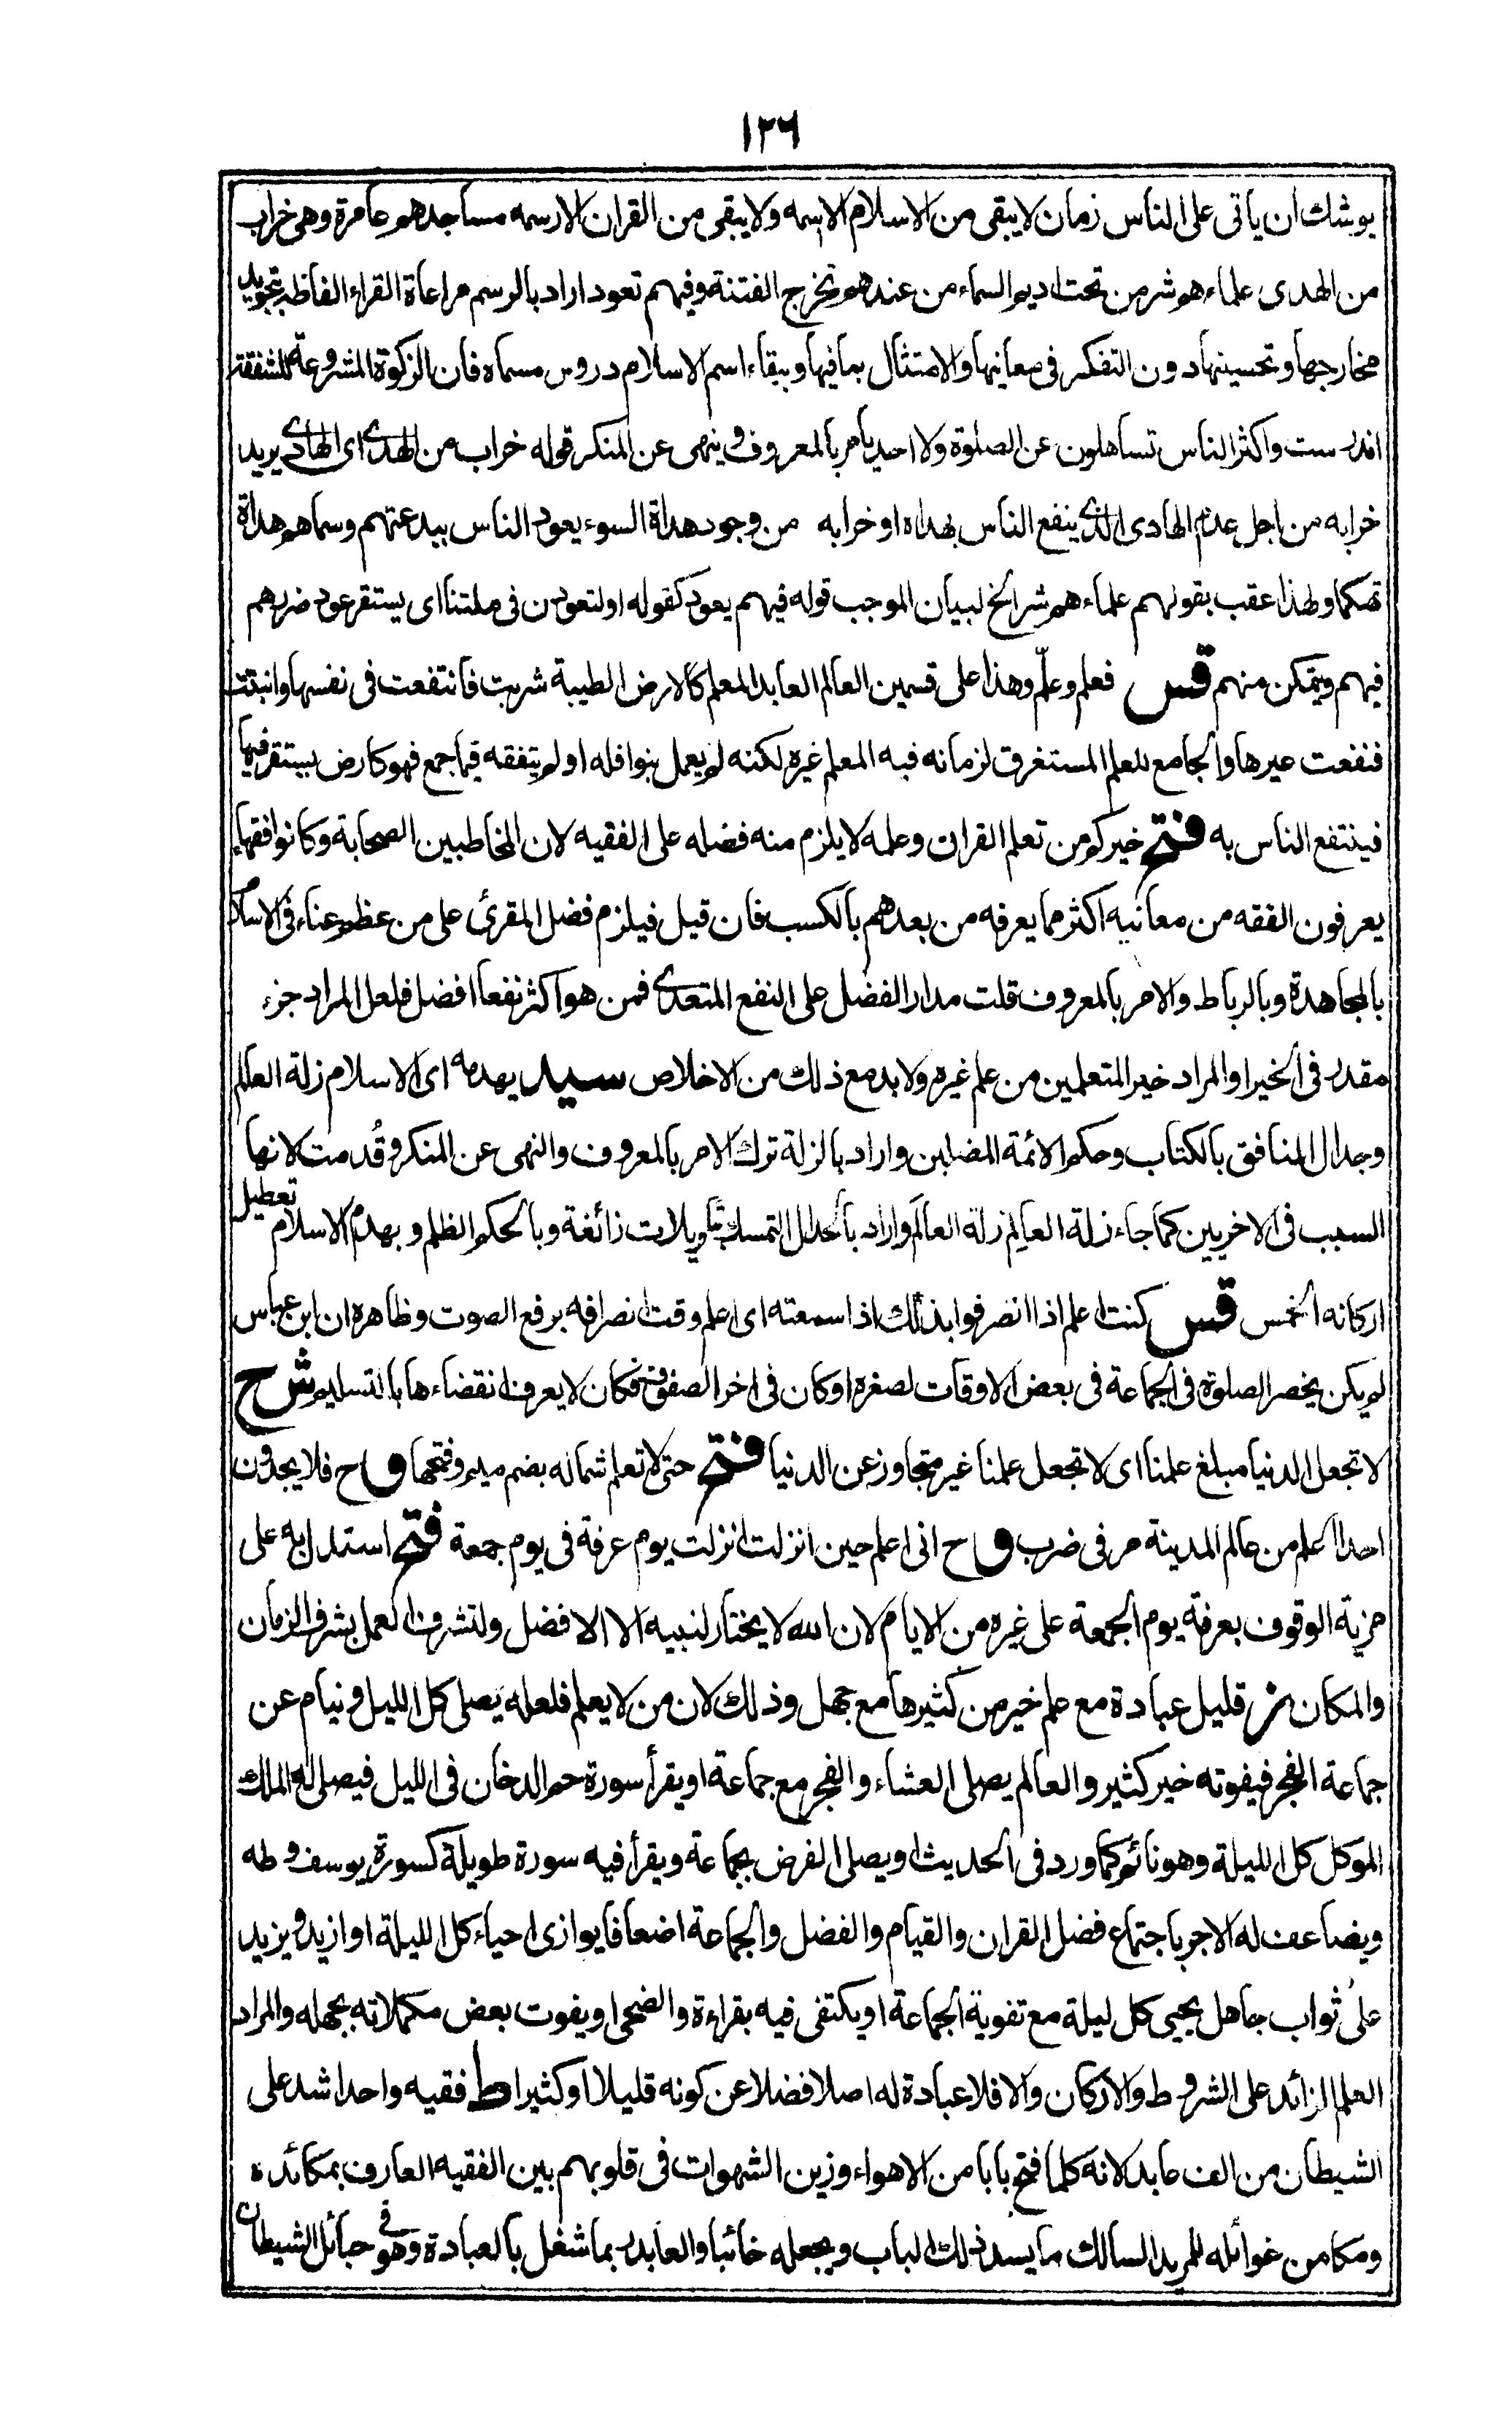 ١٢٦
يوشك ان ياتى على الناس زمان لا يبقى من الاسلام الا اسمه ولا يبقى من القران الا رسمه مساجدهم عامرة وهى خراب
من الهدى علماءهم شر من تحت اديم السماء من عندهم تخرج الفتنة وفيهم تعود اراد بالرسم مراعاة القراء الفاظه بتجويد
مخارجها وتحسينها دون التفكر فى معانيها والامتثال بما فيها وببقاء اسم الاسلام دروس مسماه فان الزكوة المشروعة للشفقة
اندرست واكثر الناس تساهلون عن الصلوة ولا احد يامر بالمعروف وينهى عن المنكر قوله خراب من الهدى اى الهادى يريد
خرابه من اجل عدم الهادى الذى ينفع الناس بهداه او خرابه من وجود هداة السوء يعود الناس ببدعتهم وسماهم هداة
تهكما ولهذا عقب بقولهم علماءهم شر الخ لبيان الموجب قوله فيهم يعود كقوله او لتعودن فى ملتنا اى يستقر عود ضررهم
فيهم ويتمكن منهم قس فعلم وعلّم وهذا على قسمين العالم العابد المعلم كالارض الطيبة شربت فانتفعت فى نفسها وانبتت
فنفعت غيرها والجامع للعلم المستغرق لزمانه فيه المعلم غيره لكنه لم يعمل بنوافله او لم يتفقه فيما جمع فهو كارض يستقر فيها
فينتفع الناس به فتح خيركم من تعلم القران وعلمه لا يلزم منه فضله على الفقيه لان المخاطبين الصحابة وكانوا فقهاء
يعرفون الفقه من معانيه اكثر مما يعرفه من بعدهم بالكسب فان قيل فيلزم فضل المقرئ على من عظم عناء فى الاسلام
بالمجاهدة وبالرباط والامر بالمعروف قلت مدار الفضل على النفع المتعدى فمن هو اكثر نفعا افضل فلعل المراد جزء
مقدر فى الخير او المراد خير المتعلمين من علم غيره ولا بد مع ذلك من الاخلاص سيد يهدمه اى الاسلام زلة العالم
وجدال المنافق بالكتاب وحكم الائمة المضلين واراد بالزلة ترك الامر بالمعروف والنهى عن المنكر وقُدمت لانها
السبب فى الاخريين كما جاء زلة العالِم زلة العالَم واراد بالجدال التمسك بتاويلات زائغة وبالحكم الظلم وبهدم الاسلام تعطيل
اركانه الخمس قس كنت اعلم اذا انصرفوا بذلك اذا سمعته اى اعلم وقت انصرافه برفع الصوت وظاهره ان ابن عباس
لم يكن يحضر الصلوة فى الجماعة فى بعض الاوقات لصغره او كان فى اخر الصفوف فكان لا يعرف انقضاءها بالتسليم ش ح
لا تجعل الدنيا مبلغ علمنا اى لا تجعل علمنا غير متجاوز عن الدنيا فتح حتى لا تعلم شماله بضم ميم وفتحها و ح فلا يجدون
احدا اعلم من عالم المدينة مر فى ضرب و ح انى اعلم حين انزلت انزلت يوم عرفة فى يوم جمعة فتح استدل به على
مزية الوقوف بعرفة يوم الجمعة على غيره من الايام لان الله لا يختار لنبيه الا الافضل ولتشرف العمل بشرف الزمان
والمكان ز قليل عبادة مع علم خير من كثيرها مع جهل وذلك لان من لا يعلم فلعله يصلى كل الليل وينام عن
جماعة الفجر فيفوته خير كثير والعالم يصلى العشاء والفجر مع جماعة او يقرأ سورة حم الدخان فى الليل فيصلى له الملك
الموكل كل الليلة وهو نائم كما ورد فى الحديث او يصلى الفرض بجماعة ويقرأ فيه سورة طويلة كسورة يوسف وطه
ويضاعف له الاجر باجتماع فضل القران والقيام والفضل والجماعة اضعافا يوازى احياء كل الليلة او ازيد ويزيد
على ثواب جاهل يحيى كل ليلة مع تفوية الجماعة او يكتفى فيه بقراءة والضحى او يفوت بعض مكملاته بجهله والمراد
العلم الزائد على الشروط والاركان والا فلا عبادة له اصلا فضلا عن كونه قليلا او كثيرا ط فقيه واحد اشد على
الشيطان من الف عابد لانه كلما فتح بابا من الاهواء وزين الشهوات فى قلوبهم بين الفقيه العارف بمكائده
ومكامن غوائله للمريد السالك ما يسد ذلك الباب ويجعله خائبا والعابد ربما شغل بالعبادة وهو فى حبائل الشيطان